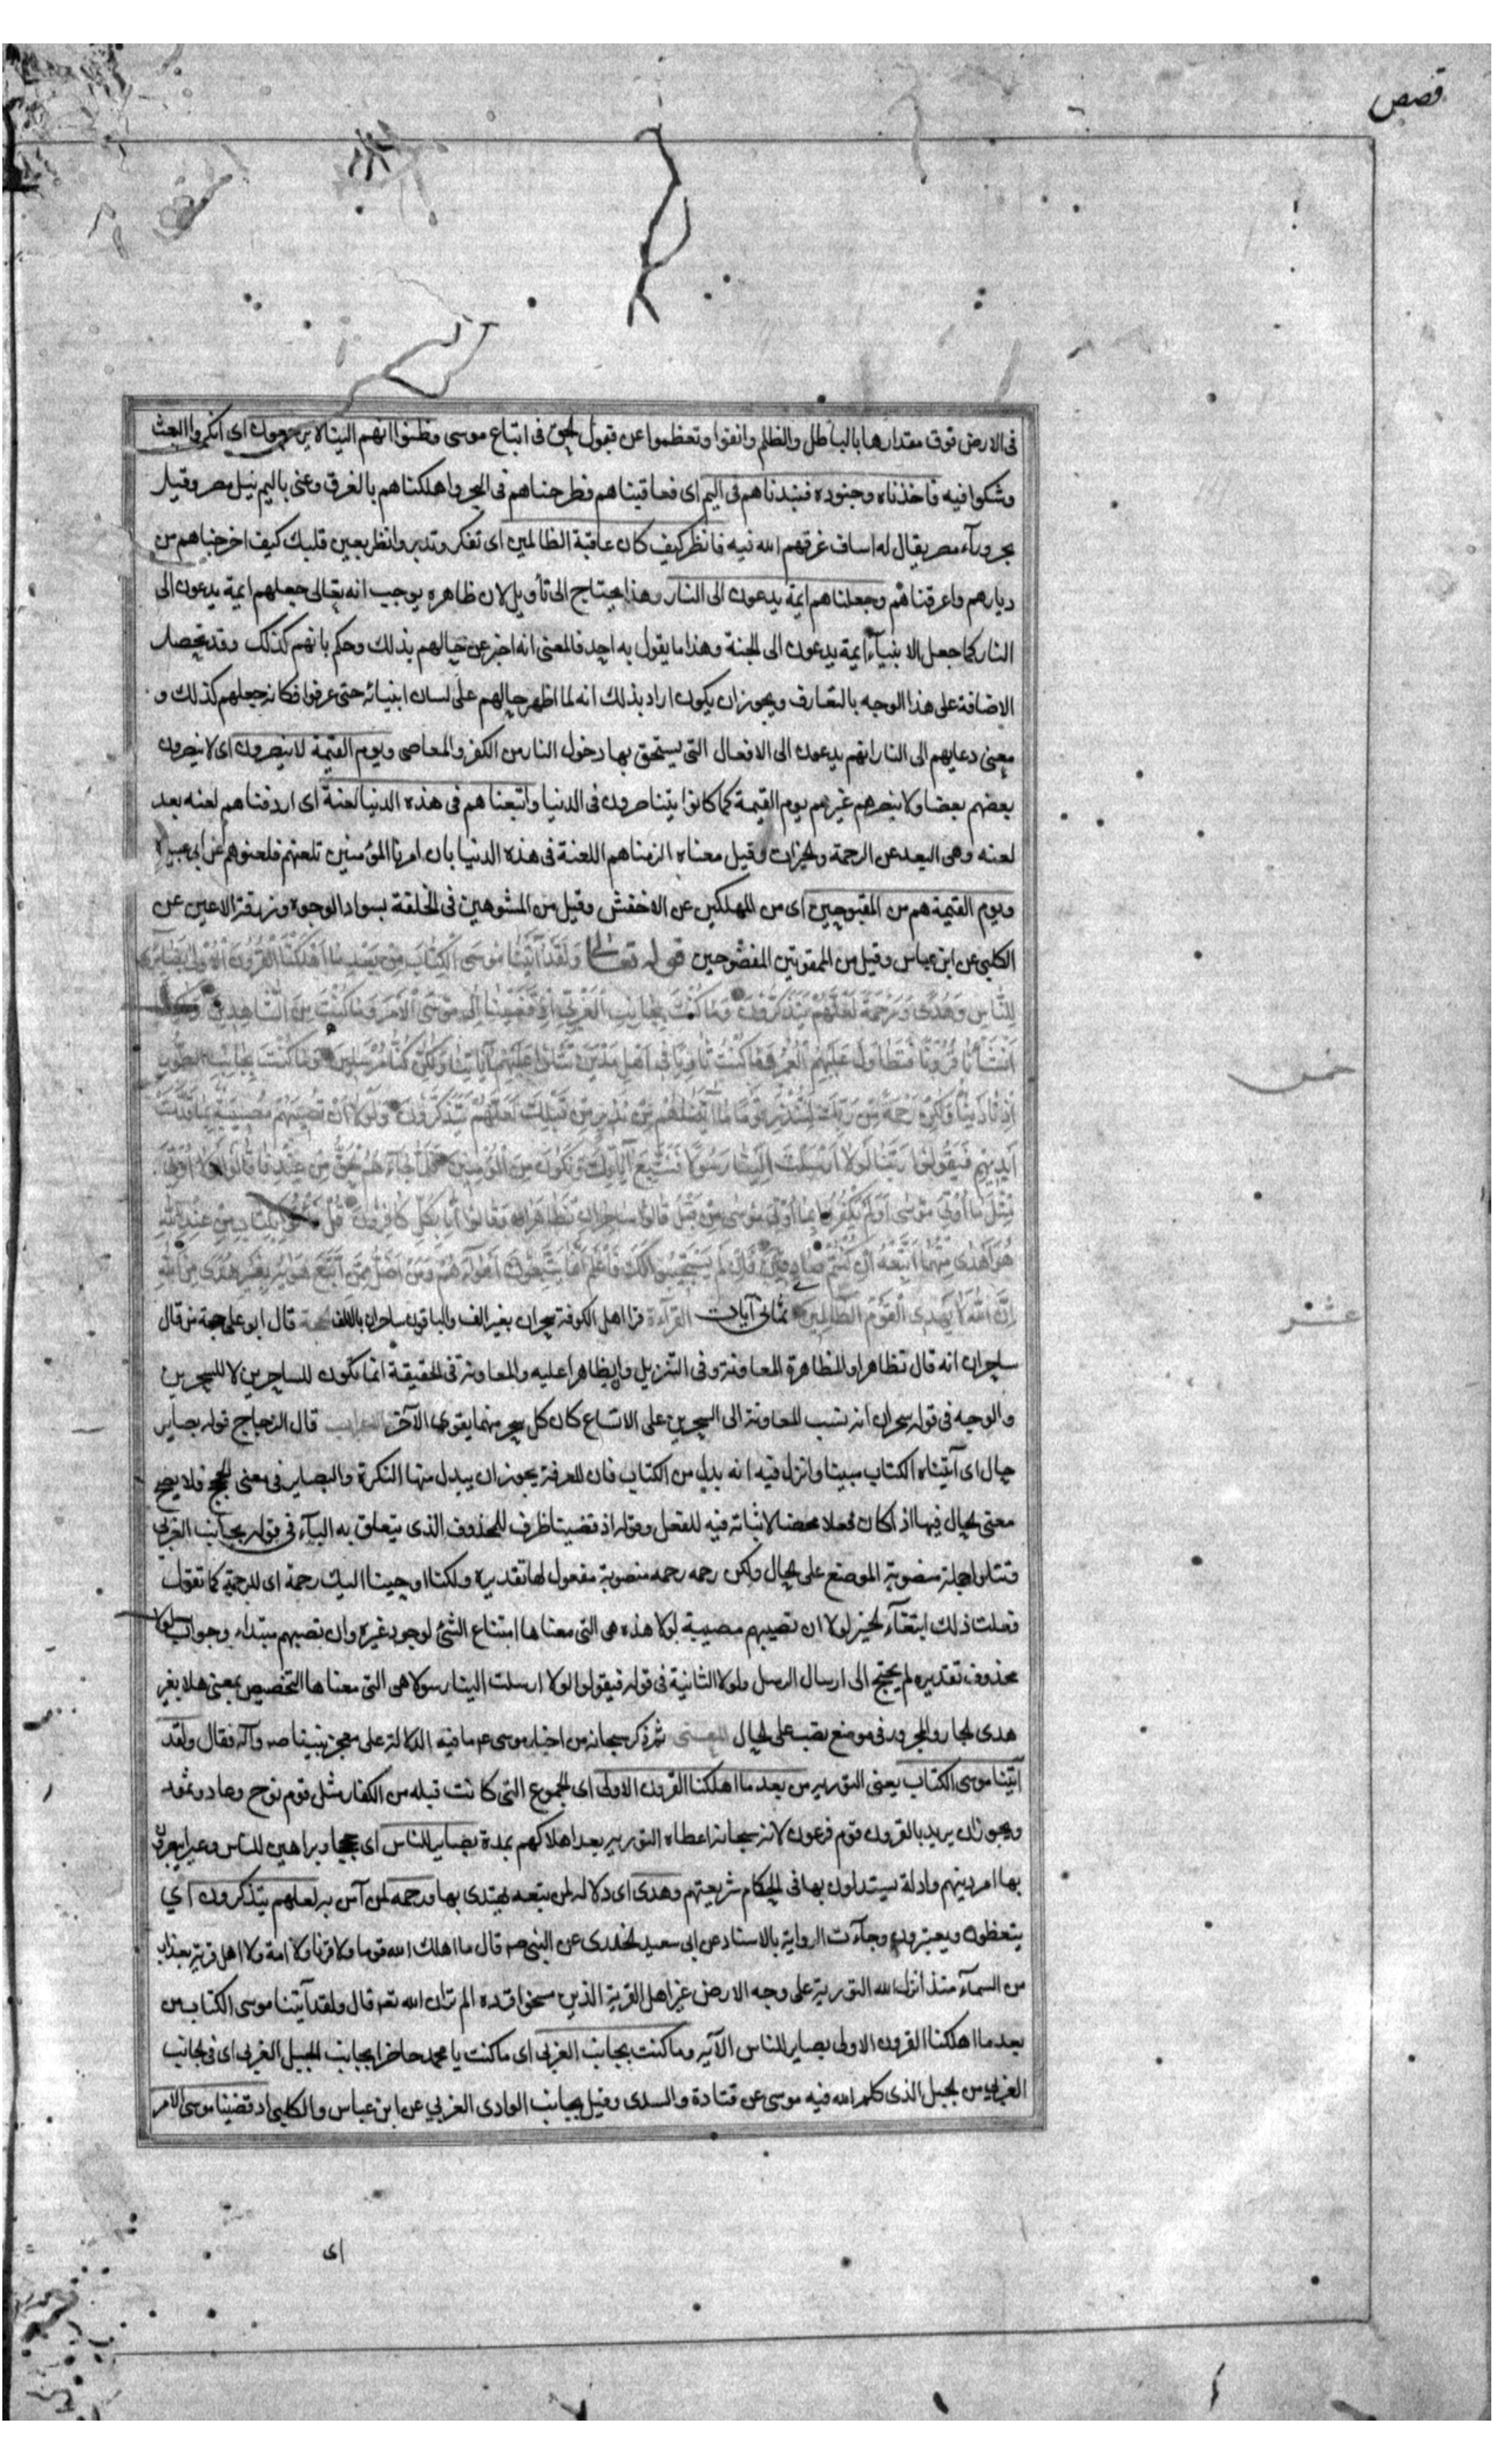 قصص
فى الارض فوق مقدارها بالباطل والظلم وانفوا وتعظموا عن قبول الحق فى اتباع موسى وظنوا انهم الينا لا يرجعون اى انكروا البعث
وشكوا فيه فاخذناه وجنوده فنبذناهم فى اليم اى فعاقبناهم فطرحناهم فى البحر واهلكناهم بالغرق وعنى باليم نيل مصر وقيل
بحر ورآء مصر يقال له اساف غرقهم الله فيه فانظر كيف كان عاقبة الظالمين اى تفكر وتدبر وانظر بعين قلبك كيف اخرجناهم من
ديارهم واغرقناهم وجعلناهم ايمة يدعون الى النار وهذا يحتاج الى تأويل لان ظاهره يوجب انه تعالى جعلهم ايمة يدعون الى
النار كما جعل الانبيآء ايمة يدعون الى الجنة وهذا ما يقول به احد فالمعنى انه اخبر عن حالهم بذلك وحكم بانهم كذلك وقد تحصل
الاضافة على هذا الوجه بالتعارف ويجوز ان يكون اراد بذلك انه لما اظهر حالهم على لسان انبيائه حتى عرفوا فكانه جعلهم كذلك و
معنى دعايهم الى النار انهم يدعون الى الافعال التى يستحق بها دخول النار من الكفر والمعاصى ويوم القيمة لا ينصرون اى لا ينصرون
بعضهم بعضا ولا ينصرهم غيرهم يوم القيمة كما كانوا يتناصرون فى الدنيا واتبعناهم فى هذه الدنيا لعنة اى اردفناهم لعنه بعد
لعنه وهى البعد عن الرحمة والخيرات وقيل معناه الزمناهم اللعنة فى هذه الدنيا بان امرنا المؤمنين تلعنهم فلعنوهم عن ابى عبيدة
ويوم القيمة هم من المقبوحين اى من المهلكين عن الاخفش وقيل من المشوهين فى الخلقة بسواد الوجوه وزرقة الاعين عن
الكلبى عن ابن عباس وقيل من الممقوتين المفضوحين قوله تعالى وَلَقَدْ آتَيْنَا مُوسَى الْكِتَابَ مِنْ بَعْدِ مَا اَهْلَكْنَا الْقُرُونَ الْاُولى بَصَايِرَ
لِلنَّاسِ وَهُدًى وَرَحْمَةً لَعَلَّهُمْ يَتَذَكَّرُونَ وَمَا كُنْتَ بِجَانِبِ الْغَرْبِىِّ اِذْ قَضَيْنَا اِلى مُوسَى الْاَمْرَ وَمَا كُنْتَ مِنَ الشَّاهِدِينَ وَلكِنَّا
اَنْشَأْنَا قُرُونًا فَتَطَاوَلَ عَلَيْهِمُ الْعُمُرُ وَمَا كُنْتَ ثَاوِيًا فِى اَهْلِ مَدْيَنَ تَتْلُوا عَلَيْهِمْ آيَاتِنَا وَلكِنَّا كُنَّا مُرْسِلِينَ وَمَا كُنْتَ بِجَانِبِ الطُّورِ
اِذْ نَادَيْنَا وَلكِنْ رَحْمَةً مِنْ رَبِّكَ لِتُنْذِرَ قَوْمًا مَا اَتيهُمْ مِنْ نَذِيرٍ مِنْ قَبْلِكَ لَعَلَّهُمْ يَتَذَكَّرُونَ وَلَوْلَا اَنْ تُصِيبَهُمْ مُصِيبَةٌ بِمَا قَدَّمَتْ
اَيْدِيهِمْ فَيَقُولُوا رَبَّنَا لَوْلَا اَرْسَلْتَ اِلَيْنَا رَسُولًا فَنَتَّبِعَ آيَاتِكَ وَنَكُونَ مِنَ الْمُؤْمِنِينَ فَلَمَّا جَاءَهُمُ الْحَقُّ مِنْ عِنْدِنَا قَالُوا لَوْلَا اُوتِىَ
مِثْلَ مَا اُوتِىَ مُوسَى اَوَلَمْ يَكْفُرُوا بِمَا اُوتِىَ مُوسَى مِنْ قَبْلُ قَالُوا سَاحِرَانِ تَظَاهَرَا وَقَالُوا اِنَّا بِكُلٍّ كَافِرُونَ قُلْ فَأْتُوا بِكِتَابٍ مِنْ عِنْدِ اللهِ
هُوَ اَهْدَى مِنْهُمَا اَتَّبِعْهُ اِنْ كُنْتُمْ صَادِقِينَ فَاِنْ لَمْ يَسْتَجِيبُوا لَكَ فَاعْلَمْ اَنَّمَا يَتَّبِعُونَ اَهْوَآءَهُمْ وَمَنْ اَضَلُّ مِمَّنِ اتَّبَعَ هَوَيهُ بِغَيْرِ هُدًى مِنَ اللهِ
اِنَّ اللهَ لَا يَهْدِى الْقَوْمَ الظَّالِمِينَ ثمانى آيات القرآءة قرا اهل الكوفة سحران بغير الف والباقون ساحران بالالف الحجة قال ابو على حجة من قال
ساحران انه قال تظاهرا والمظاهرة المعاونة وفى التنزيل وان يظاهرا عليه والمعاونة فى الحقيقة انما تكون للساحرين لا للسحرين
والوجه فى قوله سحران انه نسب المعاونة الى السحرين على الاتساع كان كل سحر منهما يقوى الآخر الاعراب قال الزجاج قوله بصاير
حال اى آتيناه الكتاب مبينا وانزل فيه انه بدل من الكتاب فان المعرفة يجوز ان يبدل منها النكرة والبصاير فى معنى الحجج فلا يصح
معنى الحال فيها اذ كان فعلا محضا لا شائبة فيه للفعل وقوله اذ قضينا ظرف للمحذوف الذى يتعلق به البآء فى قوله بجانب الغربى
وتتلوا جملة منصوبة الموضع على الحال ولكن رحمه رحمه منصوبة مفعول لها تقديره ولكنا اوحينا اليك رحمة اى للرحمة كما تقول
فعلت ذلك ابتغآء الخير لولا ان تصيبهم مصيبة لولا هذه هى التى معناها امتناع الشئ لوجود غيره وان تصيبهم مبتداء وجواب لولا
محذوف تقديره لم يحتج الى ارسال الرسل ولولا الثانية فى قوله فيقولوا لولا ارسلت الينا رسولا هى التى معناها التخصيص بمعنى هلا بغير
هدى الجار والمجرور فى موضع نصب على الحال المعنى ثم ذكر سبحانه من اخبار موسى عم ما فيه الدلالة على معجز نبينا صم وآله فقال ولقد
اتينا موسى الكتاب يعنى التوريه من بعد ما اهلكنا القرون الاولى اى الجموع التى كانت قبله من الكفار مثل قوم نوح وعاد وثمود
ويجوز ان يريد بالقرون قوم فرعون لانه سبحانه اعطاه التوريه بعد اهلاكهم بمدة بصاير للناس اى حججا وبراهين للناس وعبرا يبصرون
بها امر دينهم وادلة يستدلون بها فى احكام شريعتهم وهدى اى دلاله لمن يتبعه يهتدى بها ورحمه لمن آمن به لعلهم يتذكرون اي
يتعظون ويعتبرون وجآءت الرواية بالاسناد عن ابى سعيد الخدرى عن النبى صم قال ما اهلك الله قوما ولا قرنا ولا امة ولا اهل قرية بعذاب
من السمآء منذ انزل الله التورية على وجه الارض غير اهل القرية الذين مسخوا قردة الم تر ان الله تعه قال ولقد آتينا موسى الكتاب من
بعد ما اهلكنا القرون الاولى بصاير للناس الآية وما كنت بجانب الغربى اى ما كنت يا محمد حاضرا بجانب الجبل الغربى اى فى الجانب
الغربى من الجبل الذى كلم الله فيه موسى عن قتادة والسدى وقيل بجانب الوادى الغربي عن ابن عباس والكلبى اذ قضينا موسى الامر
خمس
عشر
اى